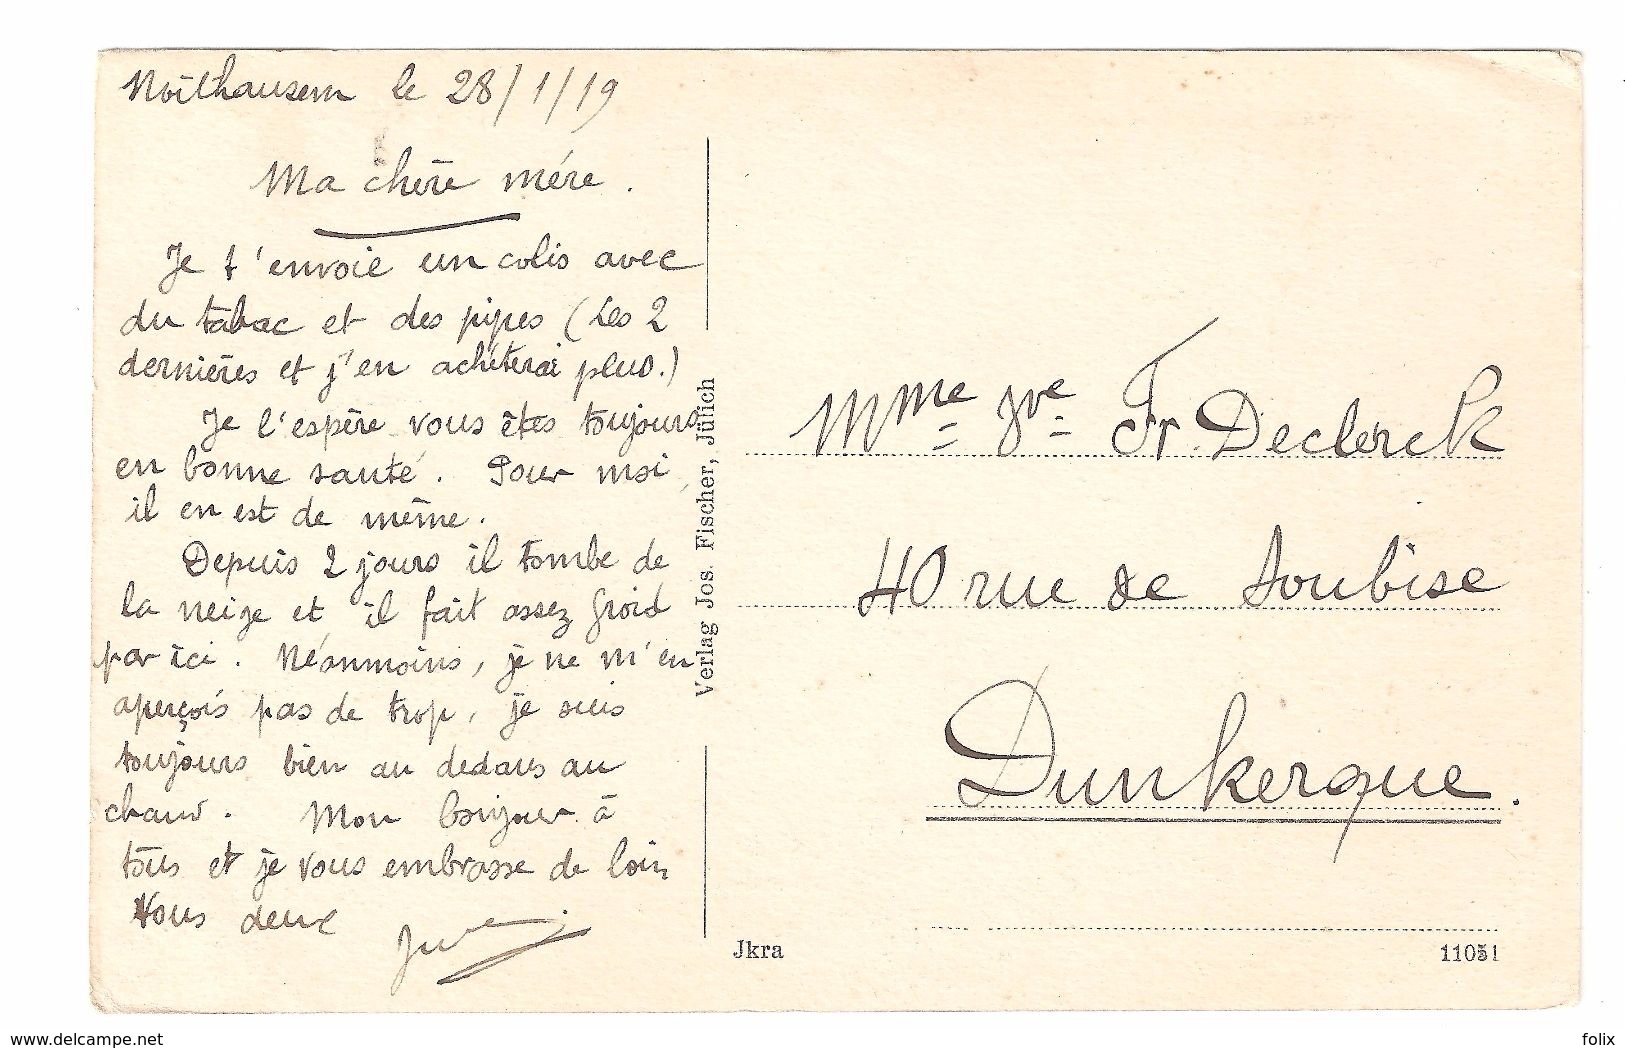 Noithausem le 28/1/19
Ma chère mére.
Je t'envoie un colis avec
du tabac et des pipes (Les 2
dernières et j'en achèterai plus.)
Je l'espère vous êtes toujours
en bonne santé. Pour moi,
il en est de même.
Depuis 2 jours il tombe de
la neige et il fait assez froid
par ici. Néanmoins, je ne m'en
aperçois pas de trop, je suis
toujours bien au dedans au
chaud. Mon bonjour à
tous et je vous embrasse de loin
Vous deux
Verlag Jos. Fischer, Jülich
Mme Vve Fr. Declerck
40 rue de Soubise
Dunkerque.
Jkra
11051
www.delcampe.net
folix